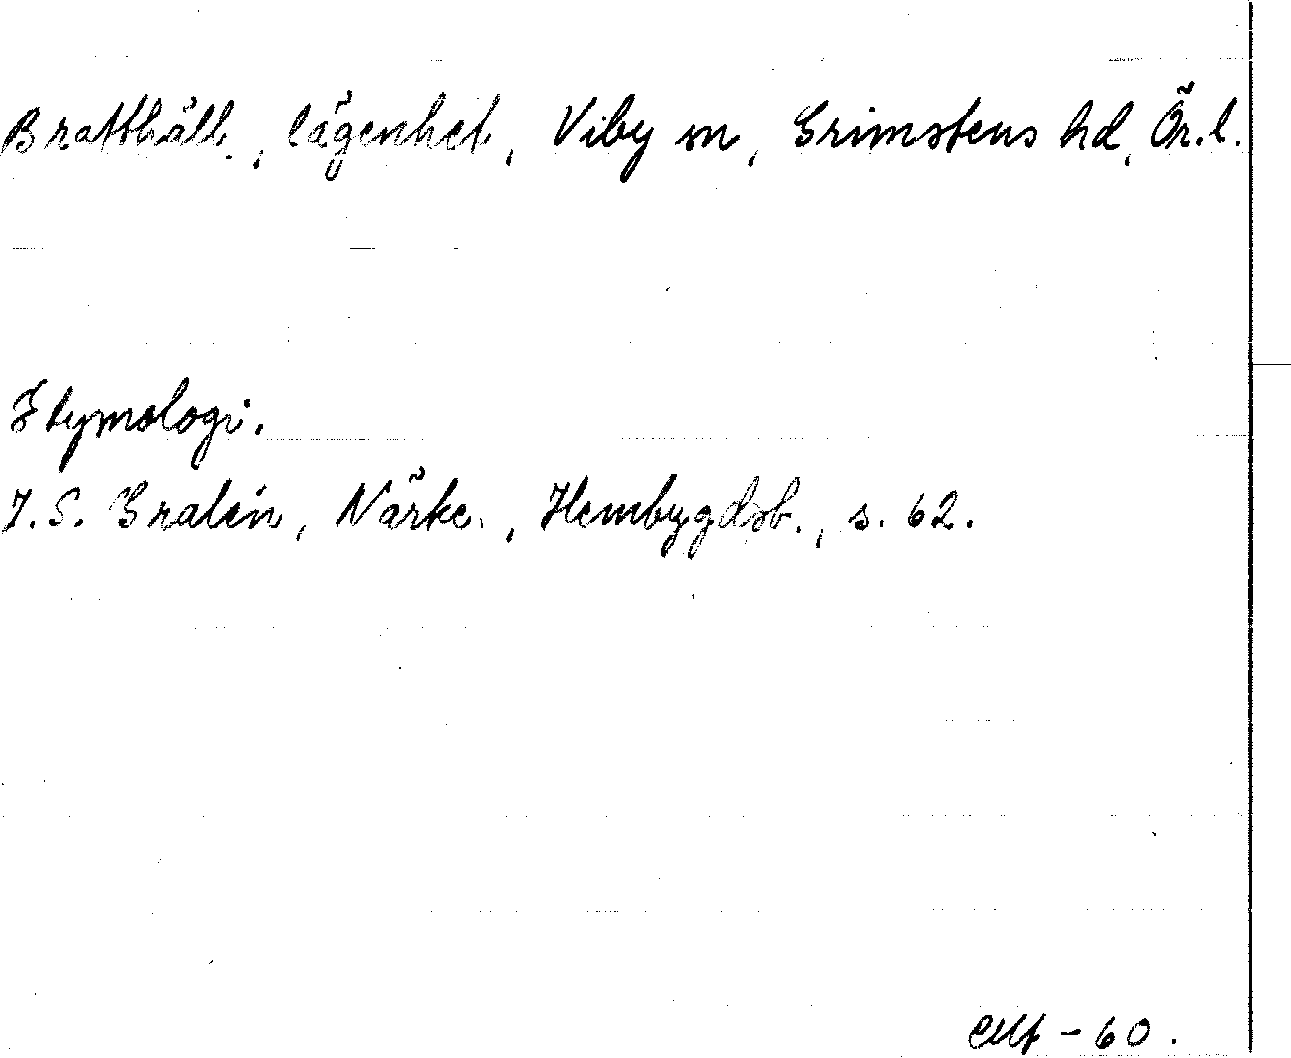 Brattbäll, lägenhet, Viby sn, Grimstens hd, Ör.l.
Etymologi.
J.S. Gralén, Närke, Hembygdsb., s. 62.
-60.